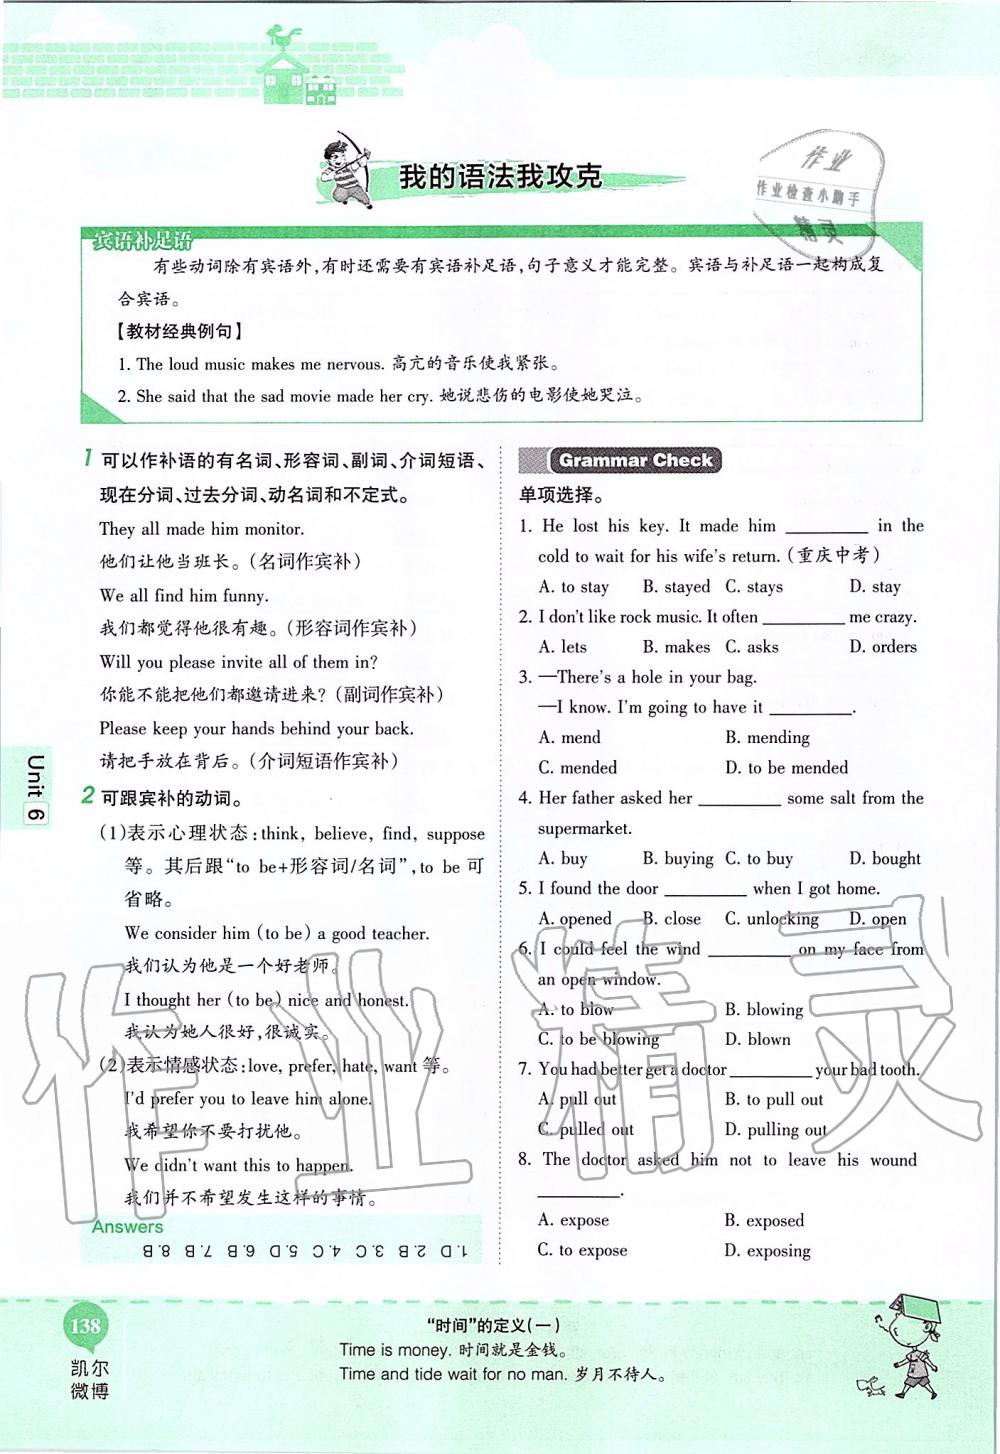 我的语法我攻克
作业
作业检查小助手
精灵
宾语补足语
有些动词除有宾语外,有时还需要有宾语补足语,句子意义才能完整。宾语与补足语一起构成复
合宾语。
【教材经典例句】
1. The loud music makes me nervous. 高亢的音乐使我紧张。
2. She said that the sad movie made her cry. 她说悲伤的电影使她哭泣。
1 可以作补语的有名词、形容词、副词、介词短语、
现在分词、过去分词、动名词和不定式。
They all made him monitor.
他们让他当班长。(名词作宾补)
We all find him funny.
我们都觉得他很有趣。(形容词作宾补)
Will you please invite all of them in?
你能不能把他们都邀请进来?(副词作宾补)
Please keep your hands behind your back.
请把手放在背后。(介词短语作宾补)
2 可跟宾补的动词。
(1)表示心理状态:think, believe, find, suppose
等。其后跟“to be+形容词/名词”,to be 可
省略。
We consider him (to be) a good teacher.
我们认为他是一个好老师。
I thought her (to be) nice and honest.
我认为她人很好,很诚实。
(2)表示情感状态:love, prefer, hate, want 等。
I'd prefer you to leave him alone.
我希望你不要打扰他。
We didn't want this to happen.
我们并不希望发生这样的事情。
Answers
1. D 2. B 3. C 4. C 5. D 6. B 7. B 8. B
Grammar Check
单项选择。
1. He lost his key. It made him ________ in the
cold to wait for his wife's return. (重庆中考)
A. to stay B. stayed C. stays D. stay
2. I don't like rock music. It often ________ me crazy.
A. lets B. makes C. asks D. orders
3. —There's a hole in your bag.
—I know. I'm going to have it ________.
A. mend B. mending
C. mended D. to be mended
4. Her father asked her ________ some salt from the
supermarket.
A. buy B. buying C. to buy D. bought
5. I found the door ________ when I got home.
A. opened B. close C. unlocking D. open
6. I could feel the wind ________ on my face from
an open window.
A. to blow B. blowing
C. to be blowing D. blown
7. You had better get a doctor ________ your bad tooth.
A. pull out B. to pull out
C. pulled out D. pulling out
8. The doctor asked him not to leave his wound
________.
A. expose B. exposed
C. to expose D. exposing
Unit 6
作业精灵
138
凯尔
微博
“时间”的定义(一)
Time is money. 时间就是金钱。
Time and tide wait for no man. 岁月不待人。